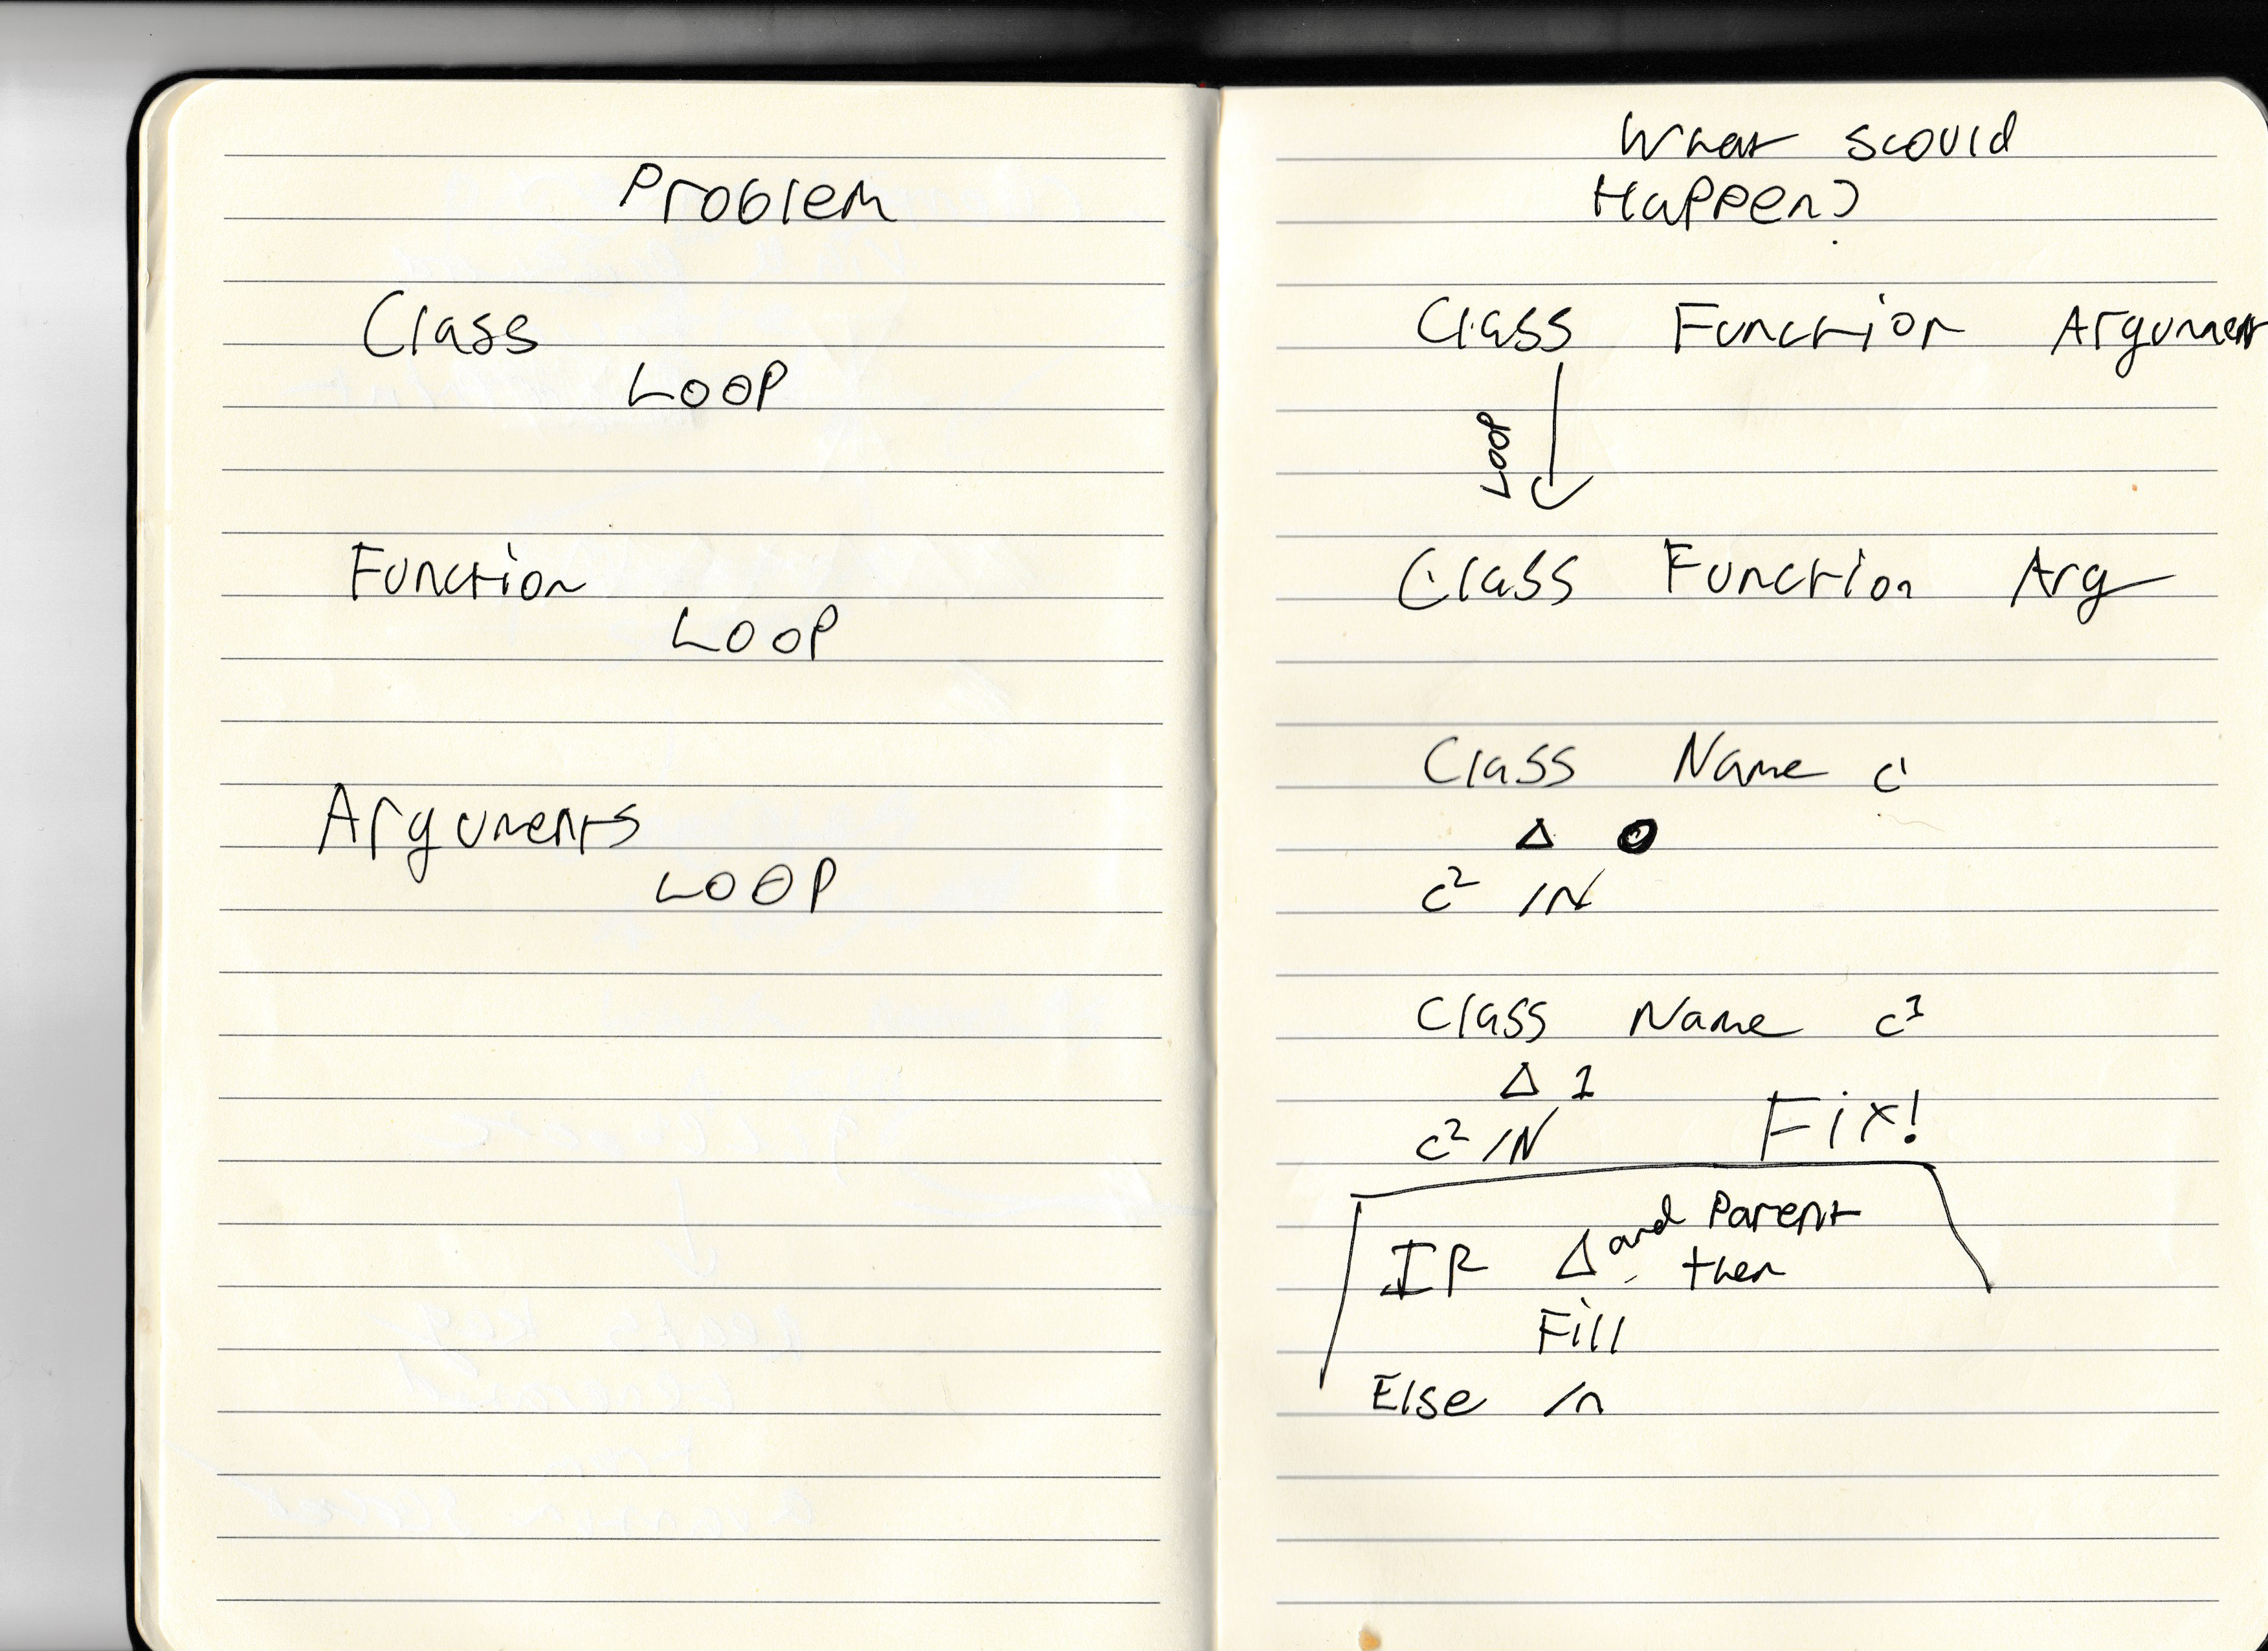 Problem
Class
LOOP
Function
LOOP
Arguments
LOOP
What scould
Happen?
Class Function Argument
LOOP
Class Function Arg
Class Name c1
Δ 0
c² /N
Class Name c1
Δ 1
c² /N
Fix!
IF Δ and Parent
then
Fill
Else /n